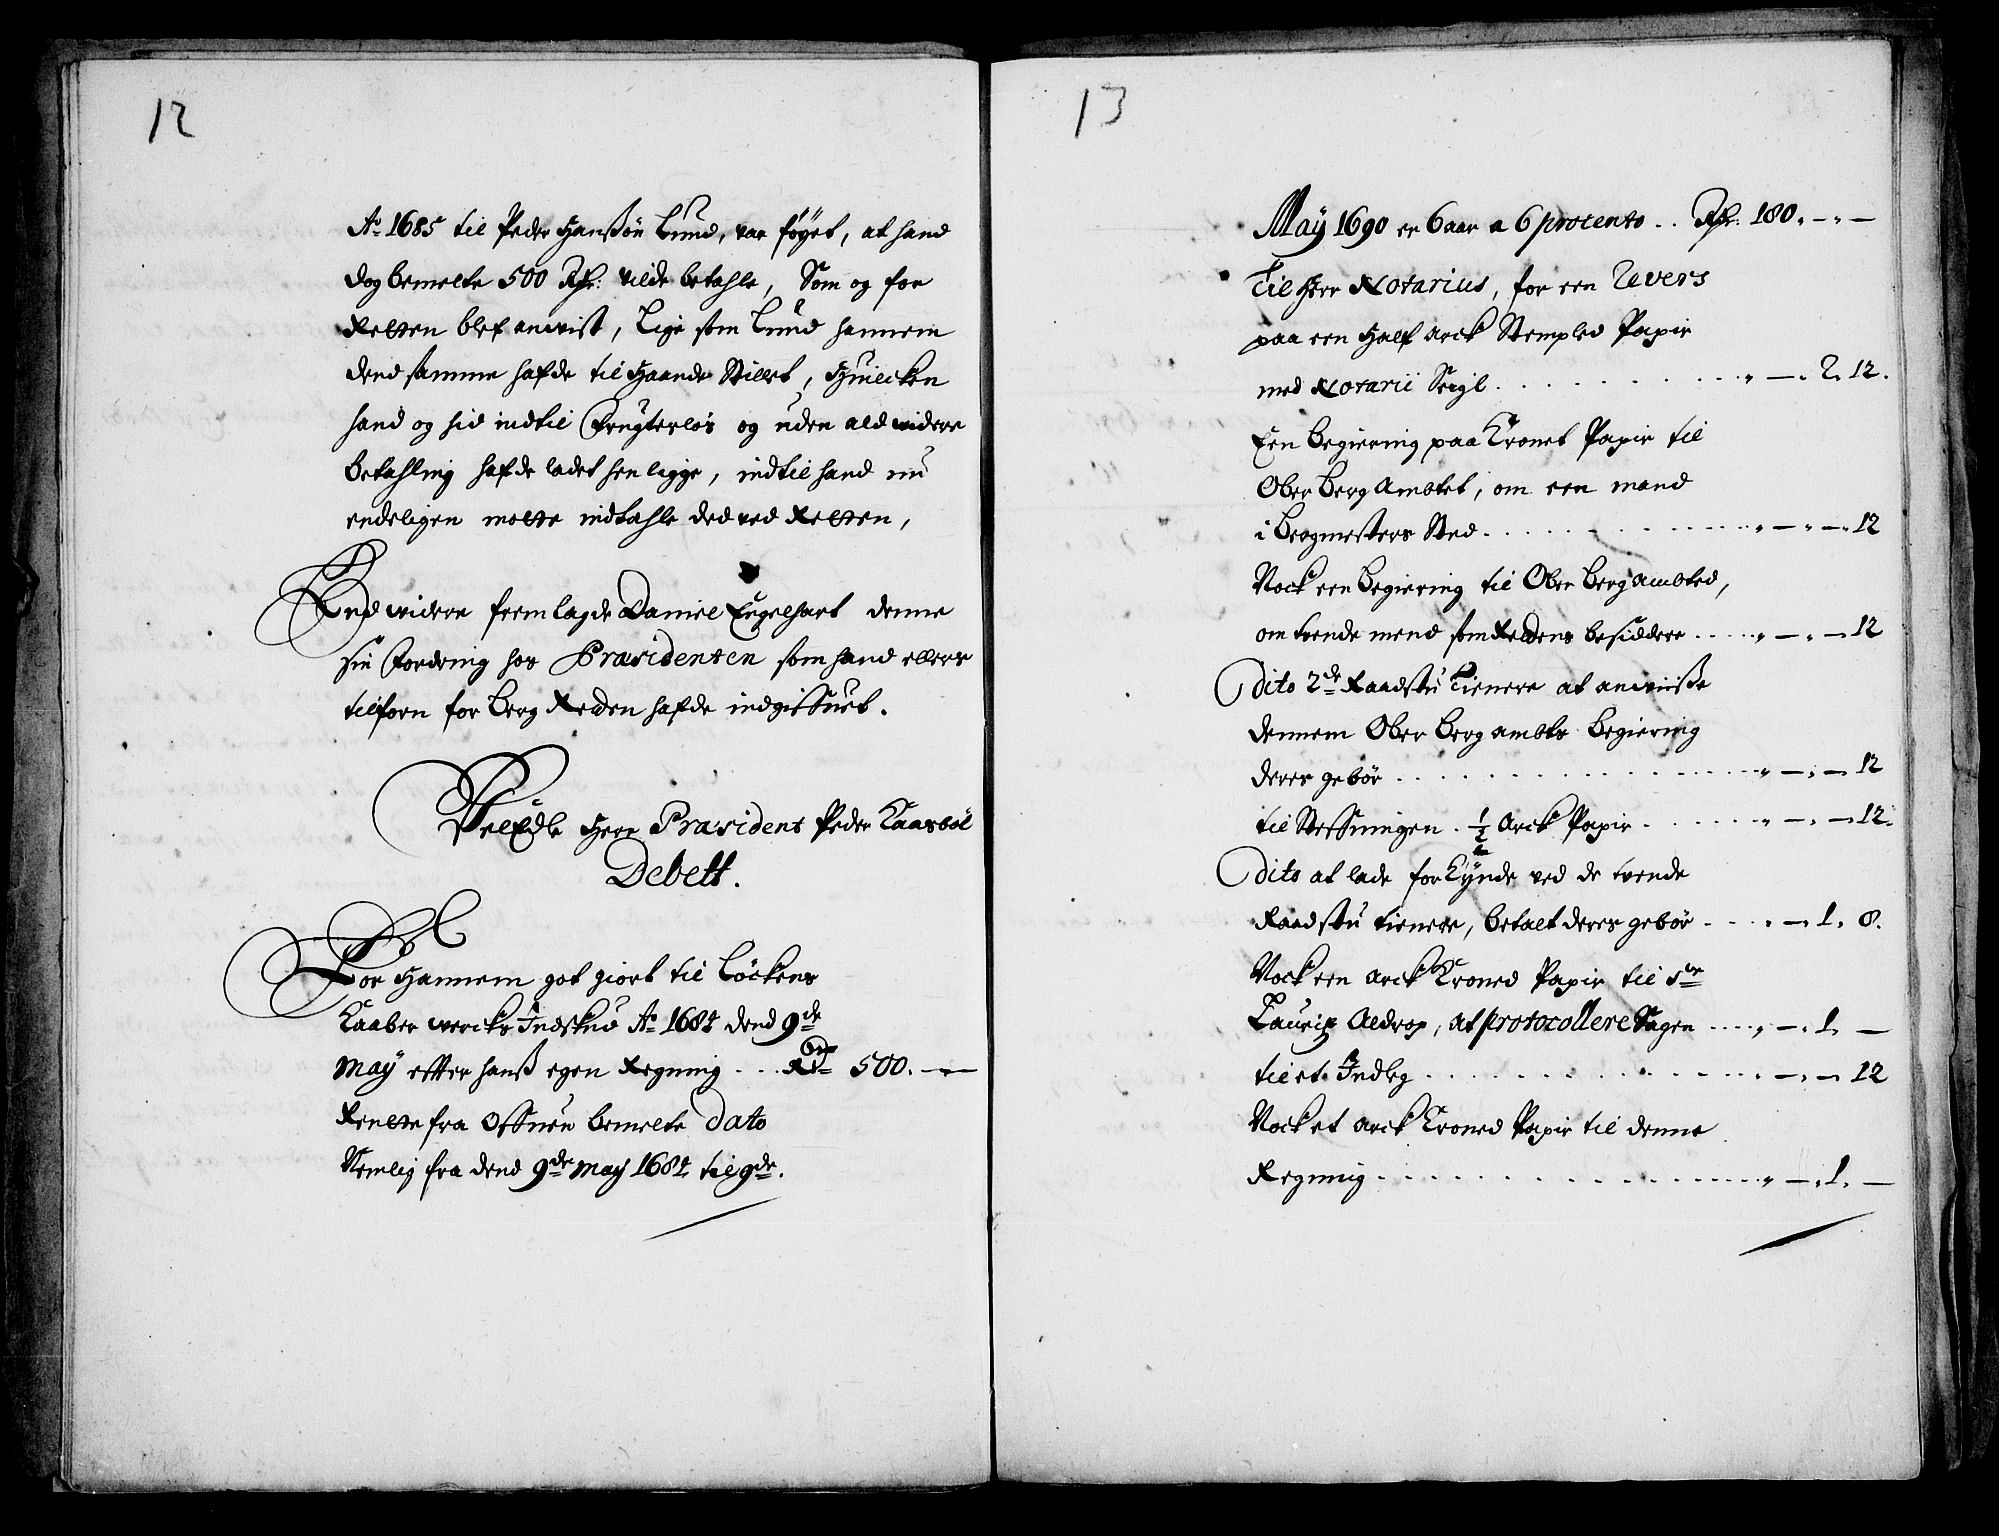 12
Ao 1685 til Peder Hanßön Lund, var föyet, at hand
dog bemelte 500 Rdr: vilde betahle, Som og for
Retten blef anvist, Lige som Lund hannem
dend samme hafde til Haande Stillet, Huilcken
hand og hid indtil Frugterlös og uden ald widere
betahling hafde ladet hen ligge, indtil hand nu
endeligen motte indtahle ded ved Retten,
End widere fremlagde Daniel Engelhart denne
sin Fordring hos Præsidenten som hand ellers
tilforn for Berg Retten hafde indgifvet.
VelEdle Herr Præsident Peder Kaasböl
Debett.
For Hannem got giort til Löckens
Kaaber wercks Indskud Ao 1684 dend 9de
May efter hanß egen Regning . . . Rdr 500. — —
Rentte fra Ofven bemelte Dato
Nemlig fra dend 9de May 1684 til 9de.
13
May 1690 er 6 aar a 6 procento . . Rdr: 180. — " —
Til Herr Notarius, for een Revers
paa een Half arck Stempled Papir
med Notarii Seigl . . . . . . . " — . 2. 12.
Een Begiering paa Kronet Papir til
Ober Berg Ambtet, om een mand
i Bergmesters Sted . . . . . . . " — " — " 12
Nock een Begiering til Ober Bergambted,
om tvende mend som Rettens besiddere . . . . " — " — 12
Dito 2de Raadstu Tienere at anviiße
dennem Ober Berg ambts Begiering
deres gebör . . . . . . . . " — " — 12
til Stefningen . 1/2 Arck Papir . . . . . " — " — 12.
Dito at lade forkynde ved de tvende
Raadstu tienere, betalt deres gebör . . . . " — 1. 8.
Nock een arck Kroned Papir til Sr
Lauritz Aldrop, at protocollere Sagen . . . . " — . 1. —
til et Indleg . . . . . . . . " — " — 12
Nock et arck Kroned Papir til denne
Regning . . . . . . . . . " — " 1. —